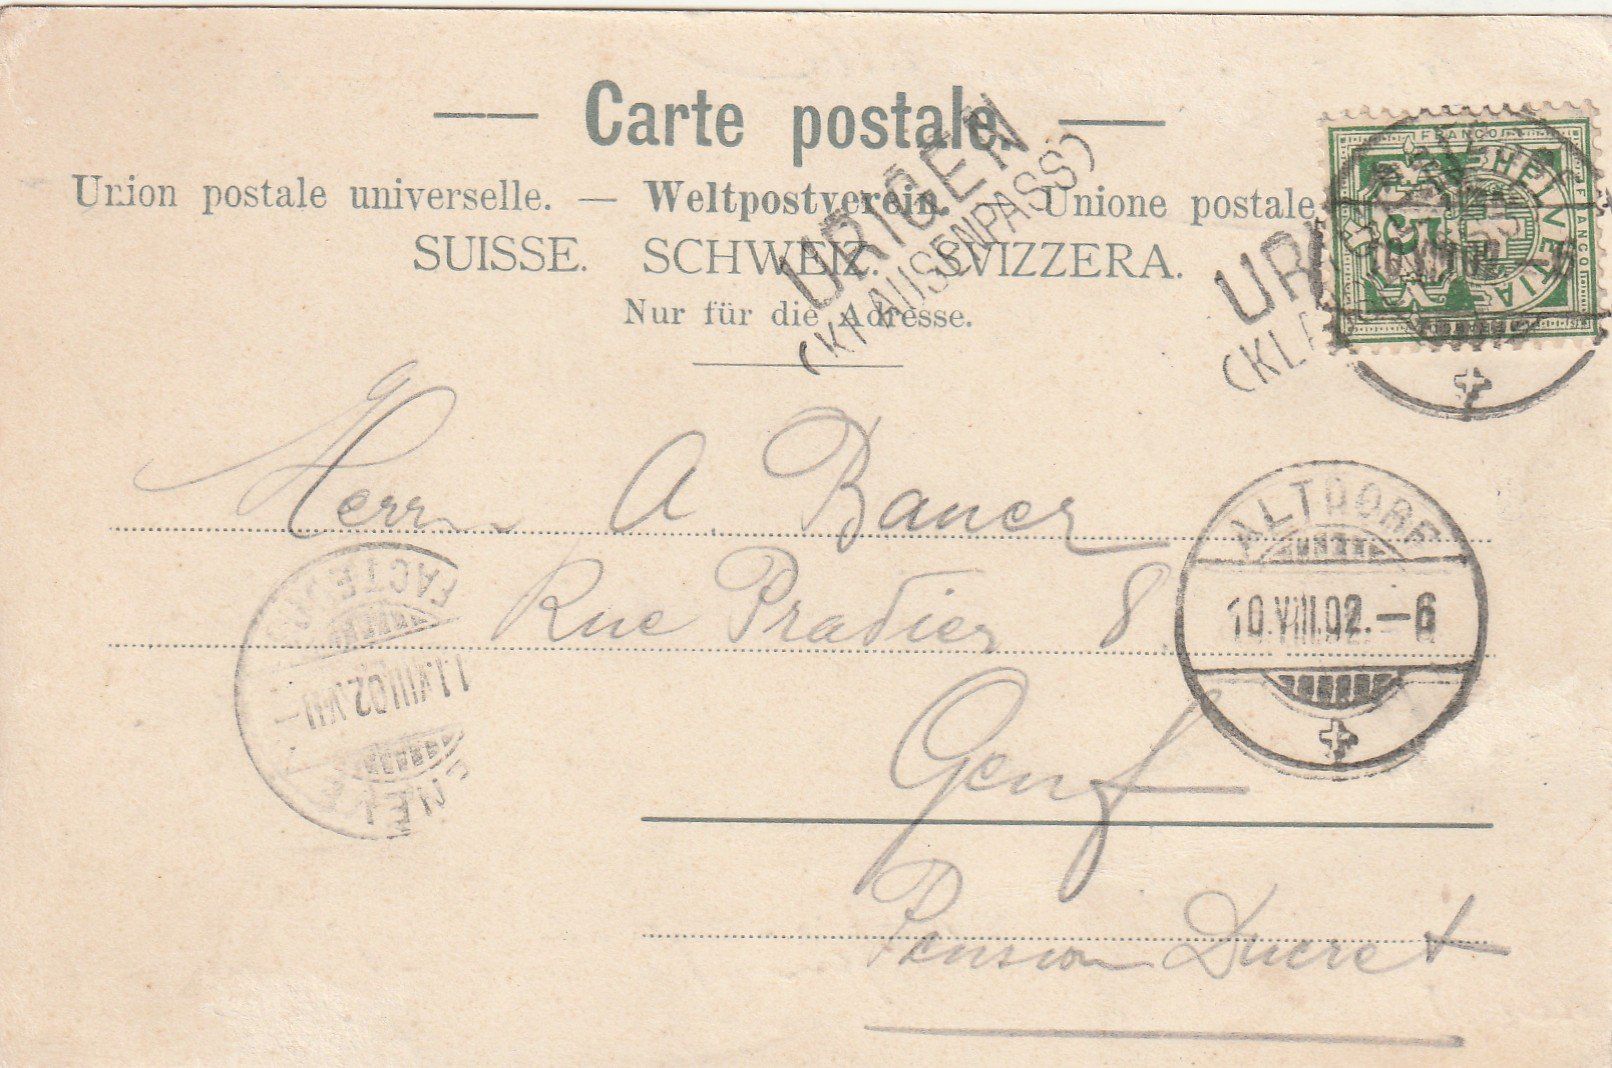 Carte postale.
Union postale universelle. — Weltpostverein. Unione postale
SUISSE. SCHWEIZ. SVIZZERA.
Nur für die Adresse.
URIGEN
(KLAUSENPASS)
UR
(KL
FRANCO
HELVETIA
5
Herrn A. Bauer
Rue Pradier 8.
Genf
Pension Ducret
ALTDORF
10.VIII.02.–6
FACTEUR
11.VIII.02.VII–